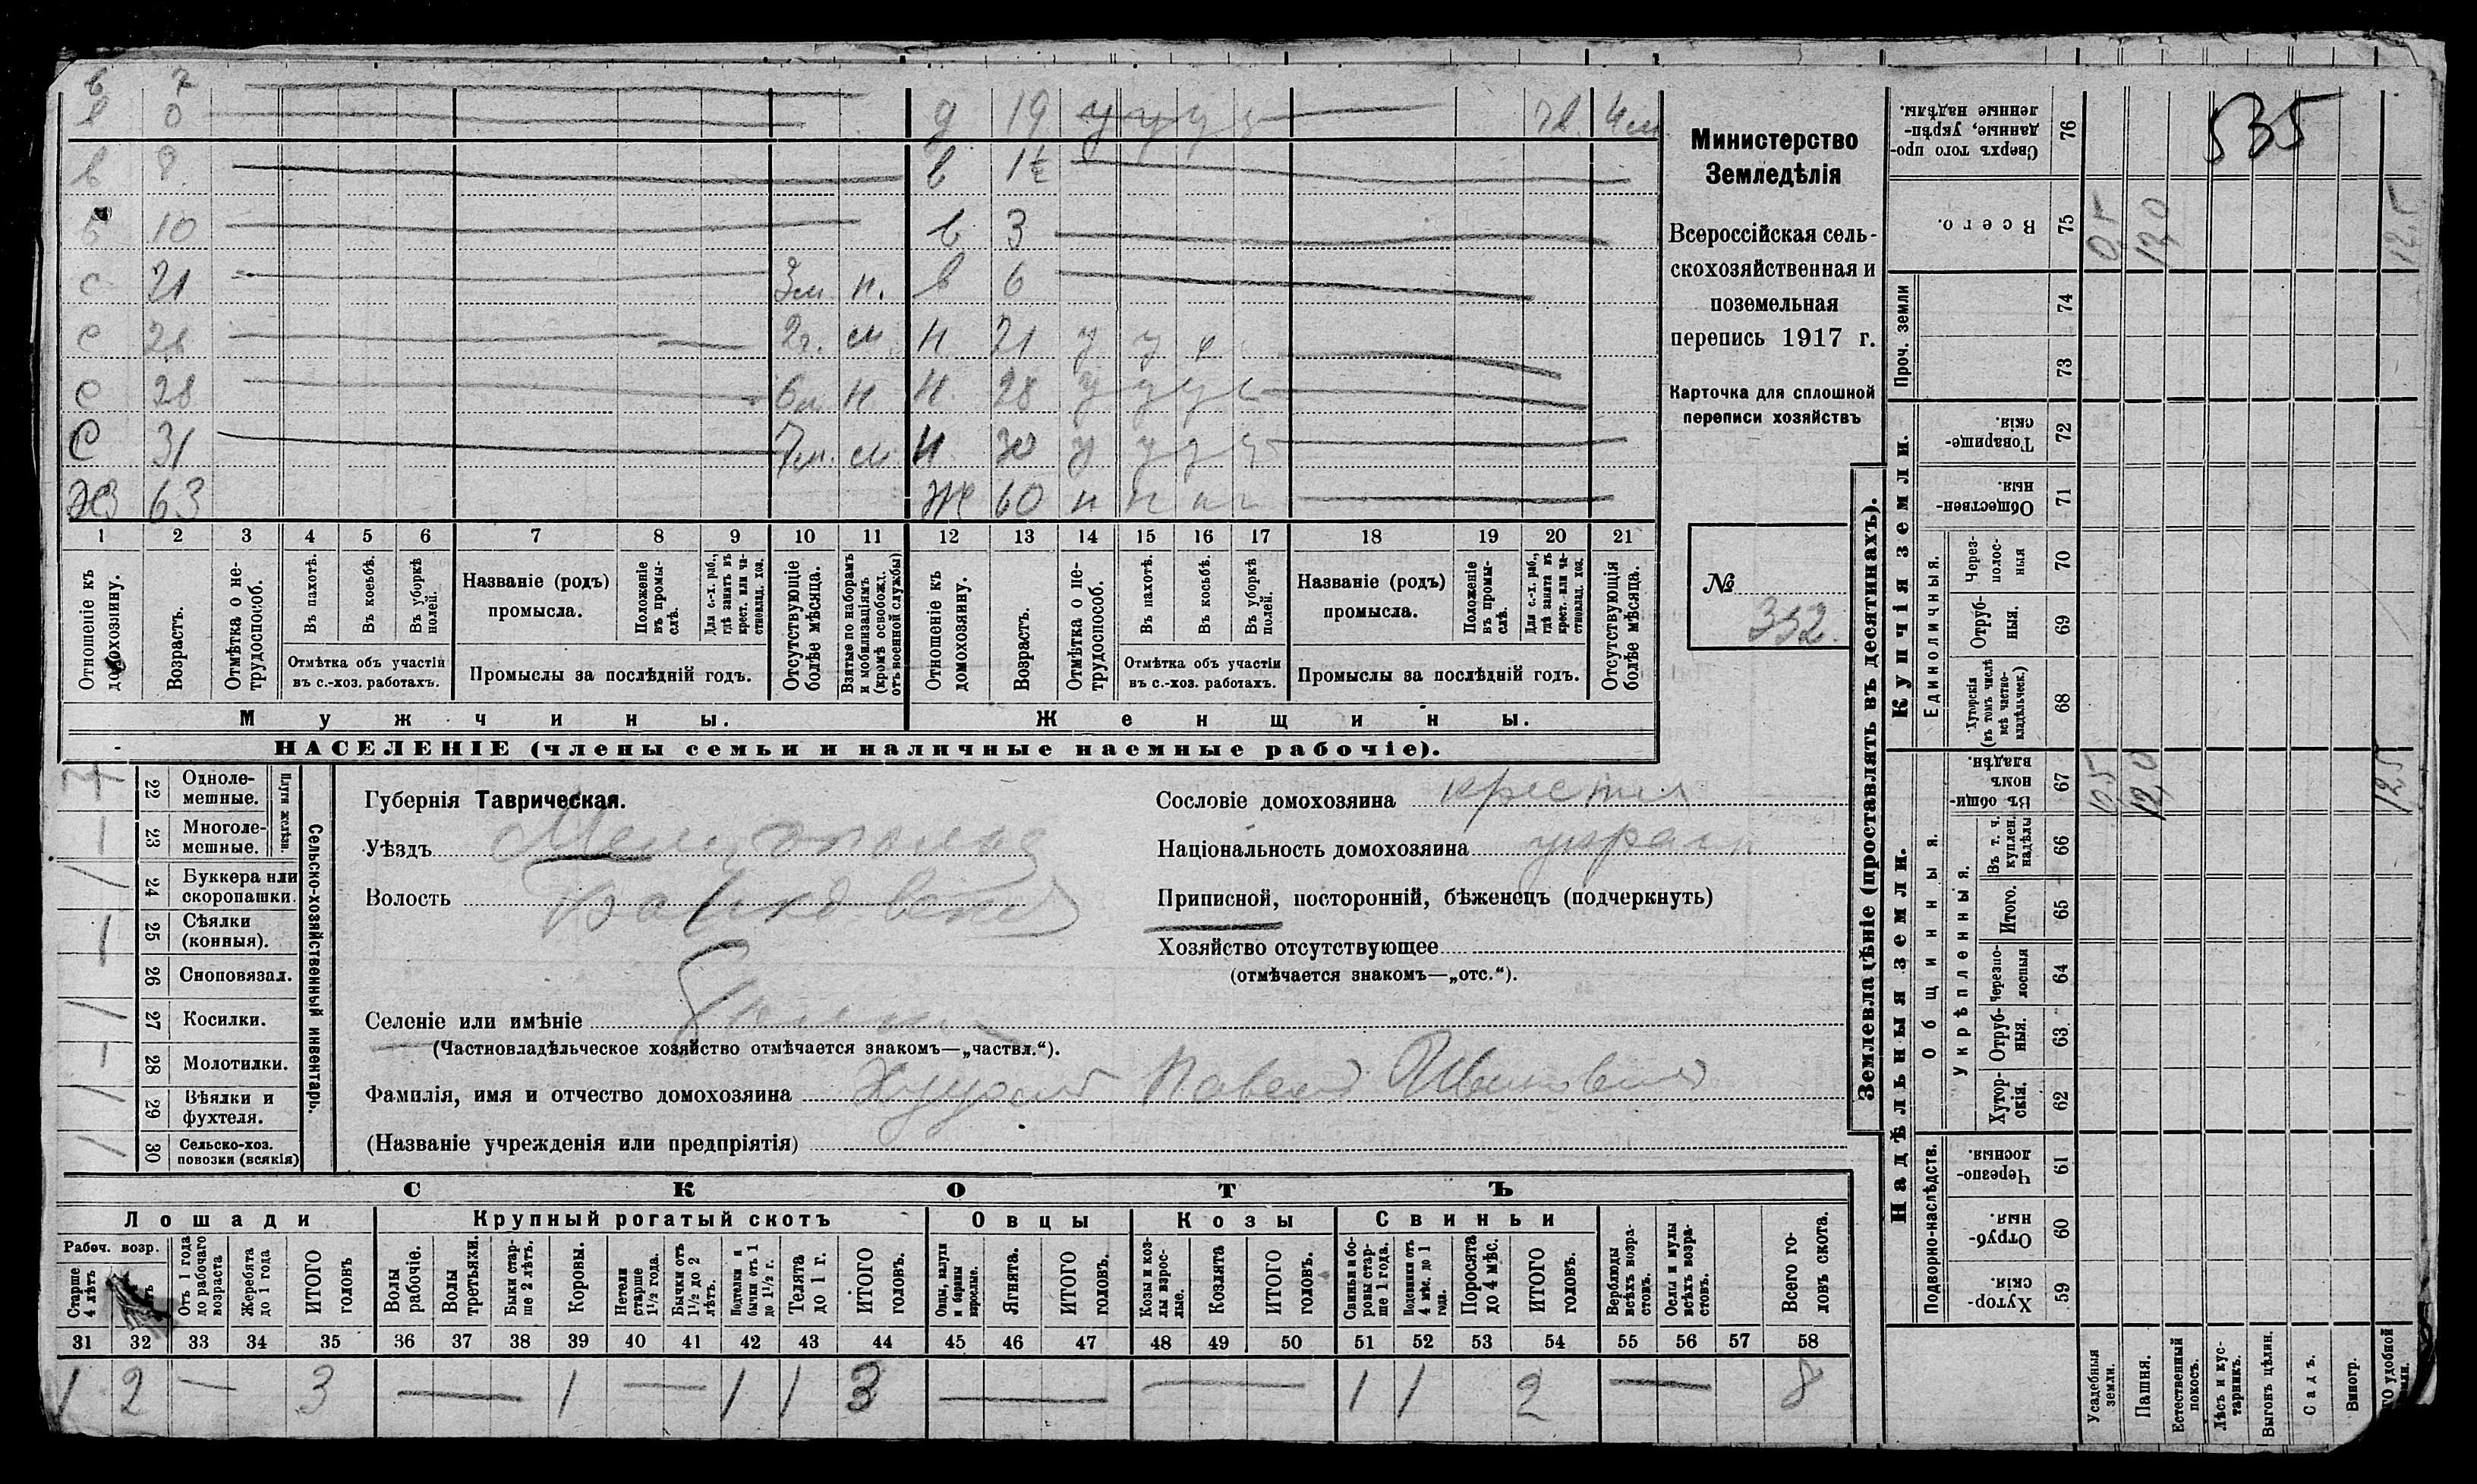 в 7
в 0 д 19 у у у у 4 м
в 8 в 1½
10 в 3
с 21 3 м. н. в 6
с 2г. м н 21 у у
с 28 6 м н н. 28 у у у
С 31 7 м. м н. 30 у у у у
ЖЗ 63 Ж 60 н н н н
1 2 3 4 5 6 7 8 9 10 11 12 13 14 15 16 17 18 19 20 21
Отношеніе къ домохозяину.
Возрастъ.
Отмѣтка о не-
трудоспособ.
Въ пахотѣ.
Въ косьбѣ.
Въ уборкѣ полей.
Отмѣтка объ участіи
въ с.-хоз. работахъ.
Названіе (родъ)
промысла.
Положеніе
въ промы-
слѣ.
Для с.-х. раб.,
гдѣ занятъ въ
крест. или ча-
стновлад. хоз.
Промыслы за послѣдній годъ.
Отсутствующіе
болѣе мѣсяца.
Взятые по наборамъ
и мобилизаціямъ
(кромѣ освобожд.
отъ военной службы)
Отношеніе къ
домохозяину.
Возрастъ.
Отмѣтка о не-
трудоспособ.
Въ пахотѣ.
Въ косьбѣ.
Въ уборкѣ
полей.
Отмѣтка объ участіи
въ с.-хоз. работахъ.
Названіе (родъ)
промысла.
Положеніе
въ промы-
слѣ.
Для с.-х. раб.,
гдѣ занята въ
крест. или ча-
стновлад. хоз.
Промыслы за послѣдній годъ.
Отсутствующія
болѣе мѣсяца.
Мужчины.
Женщины.
НАСЕЛЕНІЕ (члены семьи и наличные наемные рабочіе).
Министерство
Земледѣлія
Всероссійская сель-
скохозяйственная и
поземельная
перепись 1917 г.
Карточка для сплошной
переписи хозяйствъ
№
352.
22 Одноле-
мешные.
1 23 Многоле-
мешные.
Плуги желѣзн.
/ 24 Буккера или
скоропашки.
1 25 Сѣялки
(конныя).
26 Сноповязал.
/ 27 Косилки.
1 28 Молотилки.
/ 29 Вѣялки и
фухтеля.
/ 30 Сельско-хоз.
повозки (всякія)
Сельско-хозяйственный инвентарь.
Губернія Таврическая.
Уѣздъ
Волость
Селеніе или имѣніе
(Частновладѣльческое хозяйство отмѣчается знакомъ—„частвл.“).
Фамилія, имя и отчество домохозяина Павел Иванович
(Названіе учрежденія или предпріятія)
Сословіе домохозяина крестья
Національность домохозяина украин
Приписной, посторонній, бѣженецъ (подчеркнуть)
Хозяйство отсутствующее
(отмѣчается знакомъ—„отс.“).
СКОТЪ
Лошади Крупный рогатый скотъ Овцы Козы Свиньи
Рабоч. возр.
Старше
4 лѣтъ
Отъ 1 года
до рабочаго
возраста
Жеребята
до 1 года
ИТОГО
головъ
Волы
рабочіе.
Волы
третьяки.
Быки стар-
ше 2 лѣтъ.
Коровы.
Нетели
старше
1½ года.
Бычки отъ
1½ до 2
лѣтъ.
Подтелки и
бычки отъ 1
до 1½ г.
Телята
до 1 г.
ИТОГО
головъ.
Овцы, валухи
и бараны
взрослые.
Ягнята.
ИТОГО
головъ.
Козы и коз-
лы взрос-
лые.
Козлята
ИТОГО
головъ.
Свиньи и бо-
ровы стар-
ше 1 года.
Подсвинки отъ
4 мѣс. до 1
года.
Поросята
до 4 мѣс.
ИТОГО
головъ.
Верблюды
всѣхъ возра-
стовъ.
Ослы и мулы
всѣхъ возра-
стовъ.
Всего го-
ловъ скота.
31 32 33 34 35 36 37 38 39 40 41 42 43 44 45 46 47 48 49 50 51 52 53 54 55 56 57 58
1 2 — 3 — 1 — 1 1 3 — — 1 1 2 — 8
Землевладѣніе (проставлять въ десятинахъ).
Надѣльныя земли.
Купчія земли.
Проч. земли
Подворно-наслѣдств.
Общинныя.
Укрѣпленныя.
Единоличныя.
Сверхъ того про-
данные, укрѣп-
ленные надѣлы.
76
535
Всего.
75 0,5 12,0 12,5
74
73
Товарище-
скія.
72
Обществен-
ныя.
71
Через-
полос-
ныя
70
Отруб-
ныя.
69
Хуторскія
(въ томъ числѣ
всѣ частно-
владѣльческ.)
68
Въ общин-
номъ
владѣн.
67 0,5 12,0 12,5
Въ т. ч.
куплен.
надѣлы
66
Итого.
65
Черезпо-
лосныя
64
Отруб-
ныя.
63
Хутор-
скія.
62
Черезпо-
лосныя.
61
Отруб-
ныя.
60
Хутор-
скія.
59
Усадебныя
земли.
Пашня.
Естественный
покосъ.
Лѣсъ и кус-
тарникъ.
Выгонъ цѣлин.
Садъ.
Виногр.
удобной